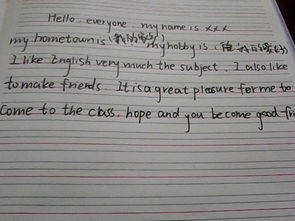 Hello, everyone, my name is xxx
my hometown is (我的家乡) my hobby is (
I like English very much the subject, I also like
to make friends It is a great pleasure for me to
Come to the class, hope and you become good fri